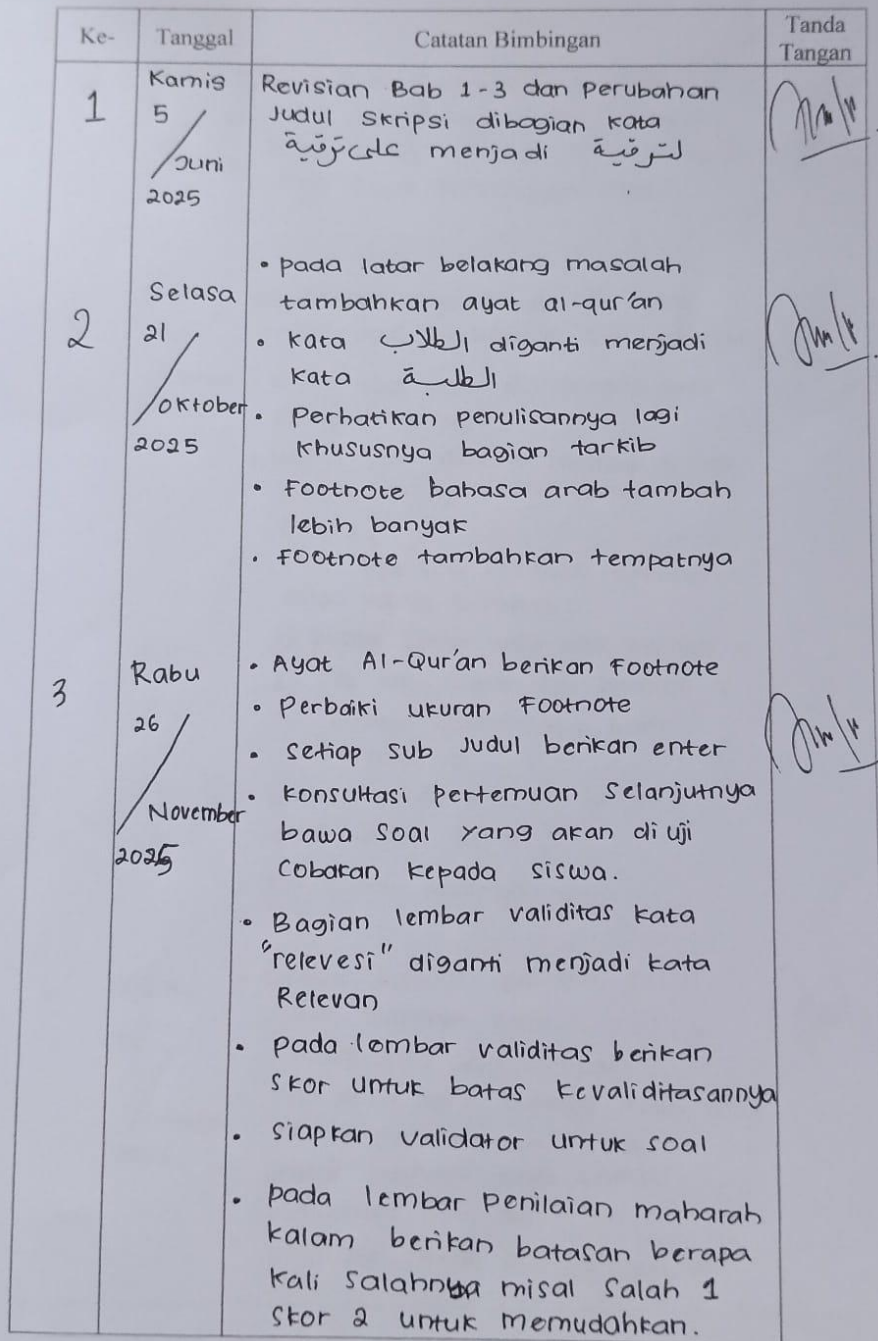 Ke- Tanggal Catatan Bimbingan Tanda Tangan
1
Kamis
5
/Juni
2025
Revisian Bab 1-3 dan Perubahan
Judul Skripsi dibagian kata
على ترقية menjadi لترقية
2
Selasa
21
/Oktober
2025
• Pada latar belakang masalah
tambahkan ayat al-qur'an
• Kata الطلاب diganti menjadi
Kata الطلبة
• Perhatikan penulisannya lagi
Khususnya bagian tarkib
• Footnote bahasa arab tambah
lebih banyak
• Footnote tambahkan tempatnya
3
Rabu
26
/November
2025
• Ayat Al-Qur'an berikan Footnote
• Perbaiki ukuran Footnote
• Setiap sub Judul berikan enter
• Konsultasi pertemuan Selanjutnya
bawa Soal yang akan di uji
Cobakan kepada siswa.
• Bagian lembar validitas kata
"relevesi" diganti menjadi kata
Relevan
• Pada lembar validitas berikan
Skor untuk batas kevaliditasannya
• Siapkan validator untuk soal
• Pada lembar Penilaian maharah
kalam berikan batasan berapa
kali Salahnya misal Salah 1
Skor 2 untuk memudahkan.